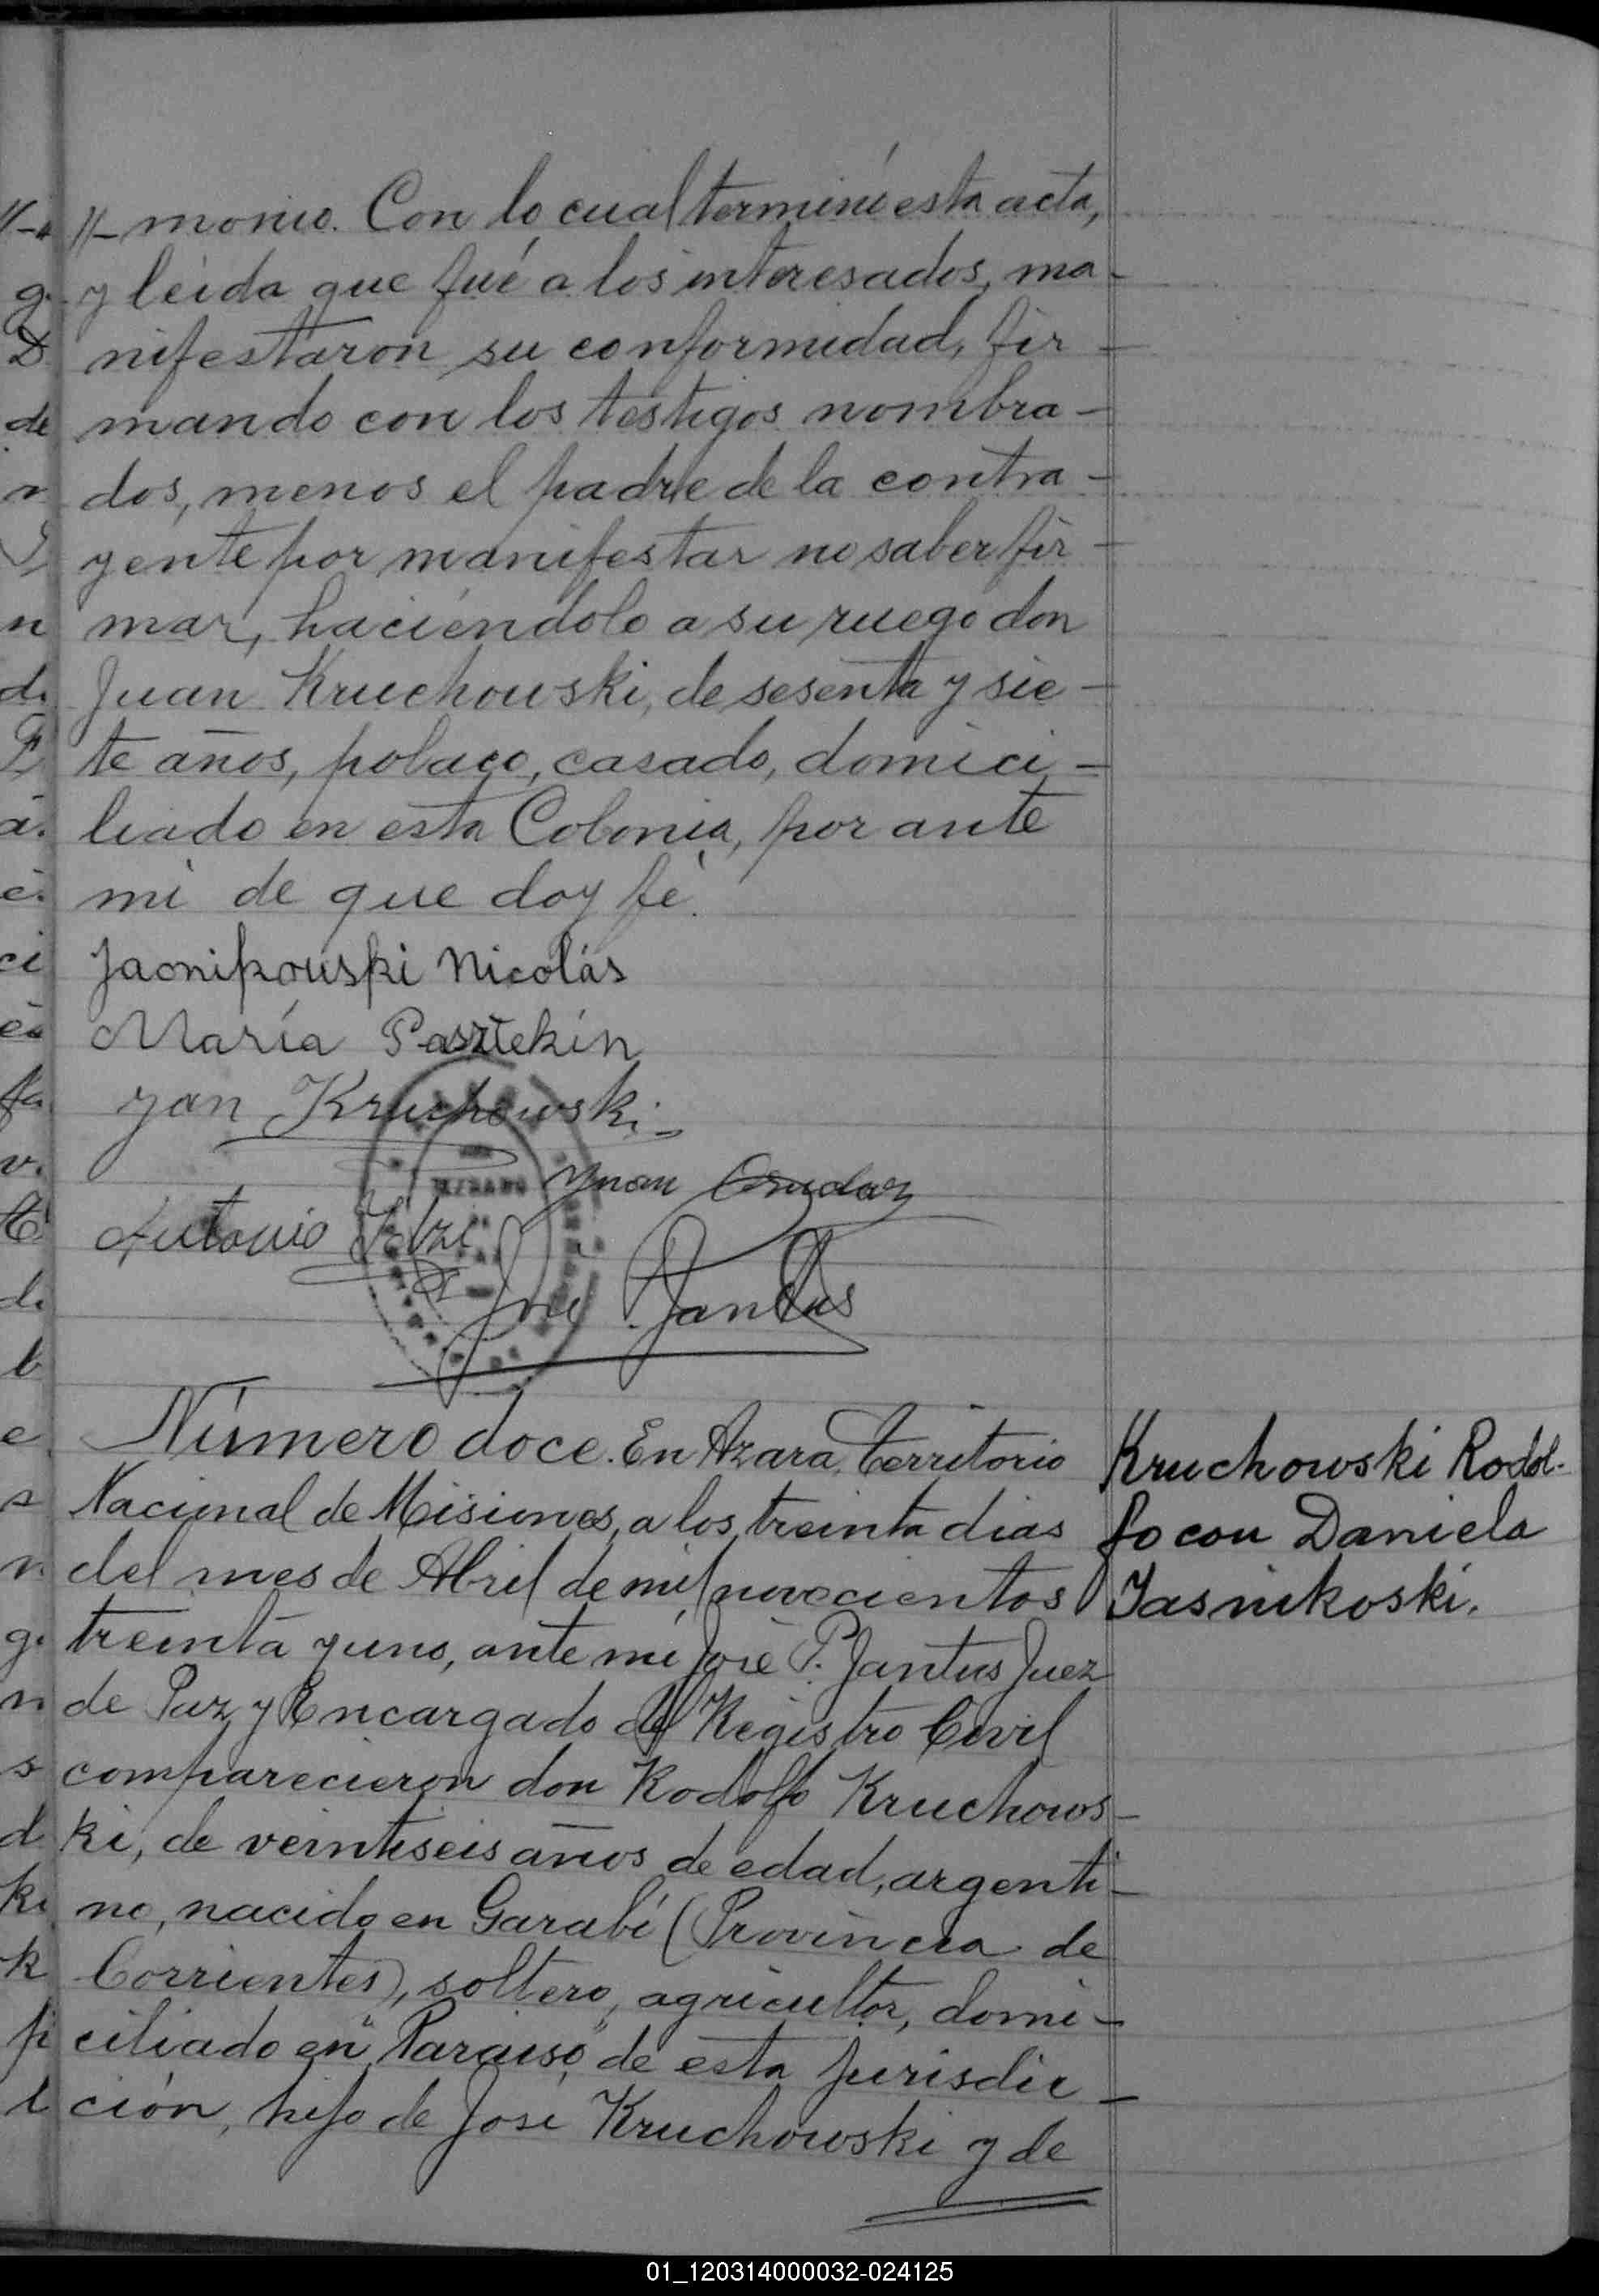 //-monio. Con lo cual terminé esta acta,
y leída que fué a los interesados, ma-
nifestaron su conformidad, fir-
mando con los testigos nombra-
dos, menos el padre de la contra-
yente por manifestar no saber fir-
mar, haciéndolo a su ruego don
Juan Kruchowski, de sesenta y sie-
te años, polaco, casado, domici-
liado en esta Colonia, por ante
mí de que doy fé.
Jacnikowski Nicolás
María Pasztekín
Jan Kruchowski
Juan
Antonio
José P. Jantus
Número doce. En Azara, Territorio
Nacional de Misiones, a los treinta dias
del mes de Abril de mil novecientos
treinta y uno, ante mí José P. Jantus Juez
de Paz y Encargado del Registro Civil
comparecieron don Rodolfo Kruchows-
ki, de veintiseis años de edad, argenti-
no, nacido en Garabí (Provincia de
Corrientes), soltero, agricultor, domi-
ciliado en "Paraiso" de esta jurisdic-
ción, hijo de José Kruchowski y de
Kruchowski Rodol-
fo con Daniela
Jasnikoski.
01_120314000032-024125